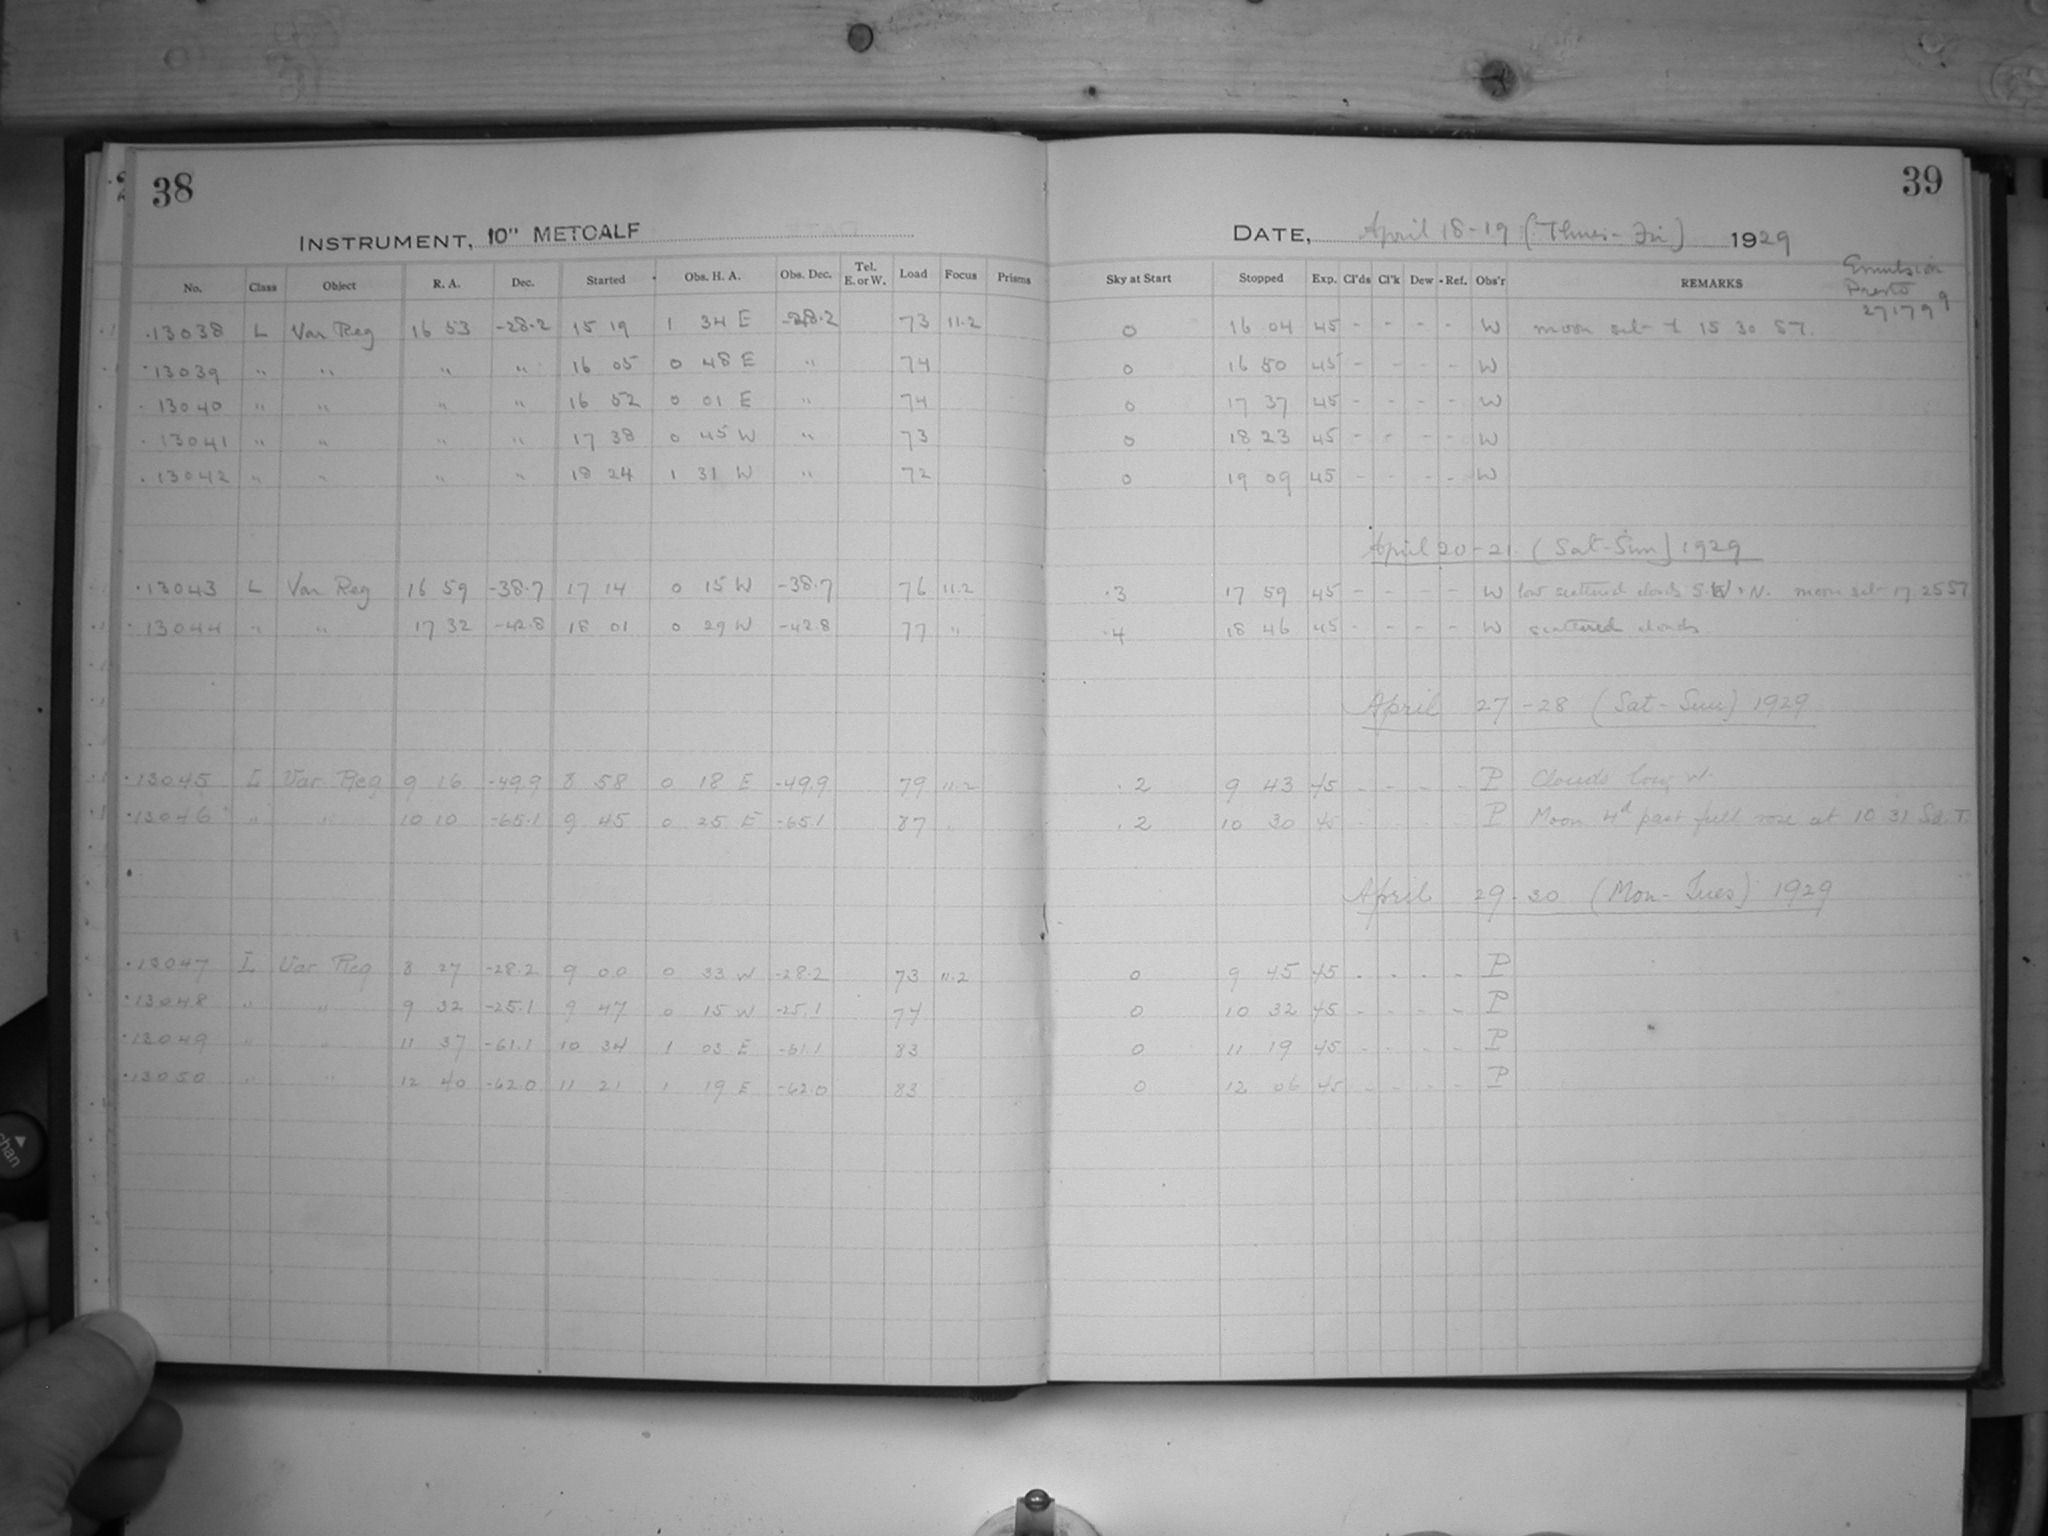 38
INSTRUMENT, 10" METCALF
No. Class Object R. A. Dec. Started Obs. H. A. Obs. Dec. Tel. E. or W. Load Focus Prisms
13038 L Var Reg 16 53 -28.2 15 19 1 34 E -28.2 73 11.2
13039 " " " " 16 05 0 48 E " 74
13040 " " " " 16 52 0 01 E " 74
13041 " " " " 17 38 0 45 W " 73
13042 " " " " 18 24 1 31 W " 72
13043 L Var Reg 16 59 -38.7 17 14 0 15 W -38.7 76 11.2
13044 " " 17 32 -42.8 18 01 0 29 W -42.8 77 "
13045 L Var Reg 9 16 -49.9 8 58 0 18 E -49.9 79 11.2
13046 " " 10 10 -65.1 9 45 0 25 E -65.1 87 "
13047 L Var Reg 8 27 -28.2 9 00 0 33 W -28.2 73 11.2
13048 " " 9 32 -25.1 9 47 0 15 W -25.1 74
13049 " " 11 37 -61.1 10 34 1 03 E -61.1 83
13050 " " 12 40 -62.0 11 21 1 19 E -62.0 83
39
DATE, April 18-19 (Thurs-Fri) 1929
Emulsion
Presto
Sky at Start Stopped Exp. Cl'ds Cl'k Dew Ref. Obs'r REMARKS
27179 9
0 16 04 45 - - - - W moon set 15 30 ST.
0 16 50 45 - - - - W
0 17 37 45 - - - - W
0 18 23 45 - - - - W
0 19 09 45 - - - - W
April 20-21 (Sat-Sun) 1929
.3 17 59 45 - - - - W low scattered clouds S.W & N. moon set 17 25 ST
.4 18 46 45 - - - - W scattered clouds
April 27-28 (Sat-Sun) 1929
.2 9 43 45 - - - - P Clouds low W.
.2 10 30 45 - - - - P Moon 4d past full rose at 10 31 Sd.T.
April 29-30 (Mon-Tues) 1929
0 9 45 45 - - - - P
0 10 32 45 - - - - P
0 11 19 45 - - - - P
0 12 06 45 - - - - P